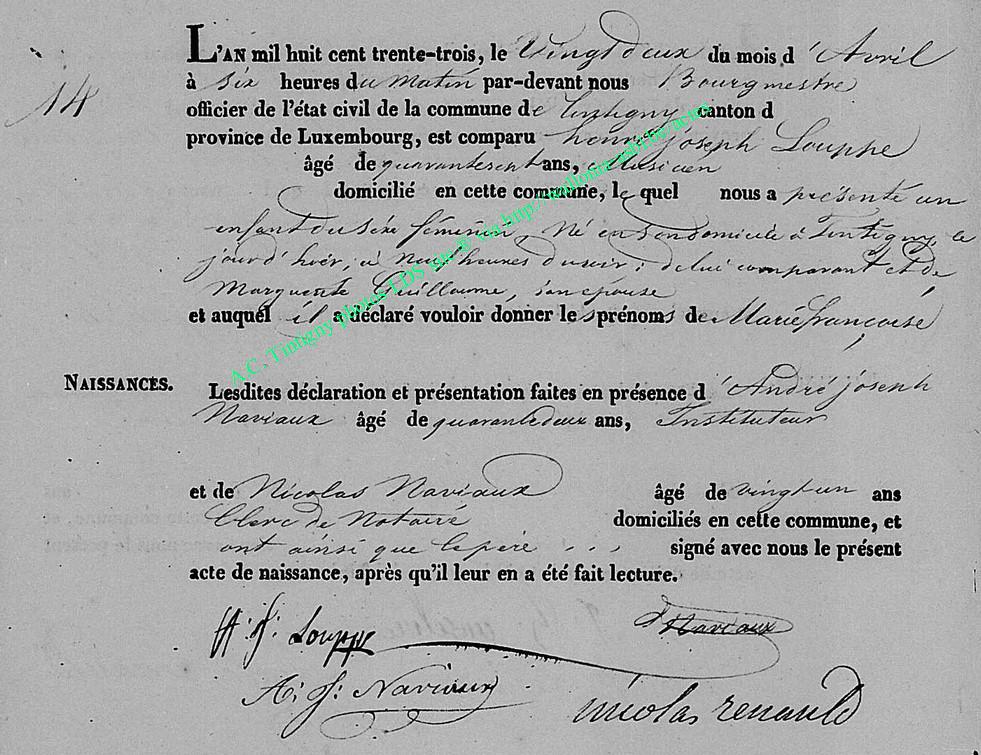 L'AN mil huit cent trente-trois, le Vingt deux du mois d'Avril
14
à Six heures du Matin par-devant nous Bourgmestre
officier de l'état civil de la commune de Tintigny canton d
province de Luxembourg, est comparu henri joseph Louppe
âgé de quarantesept ans, Musicien
domicilié en cette commune, le quel nous a présenté un
enfant du Séxe féminin, Né en Son domicile à Tintigny, le
jour d'hier, à Neuf heures du soir; de lui comparant et de
Marguerite Guillaume, son epouse
et auquel il a déclaré vouloir donner les prénoms de Marie françoise
A.C. Tintigny photos LDS
NAISSANCES.
Lesdites déclaration et présentation faites en présence d'André joseph
Naviaux âgé de quarante deux ans, Instituteur
et de Nicolas Naviaux âgé de vingt un ans
Clerc de Notaire domiciliés en cette commune, et
ont ainsi que le père . . , signé avec nous le présent
acte de naissance, après qu'il leur en a été fait lecture.
H. J. Louppe Naviaux
A. J. Naviaux nicolas renauld